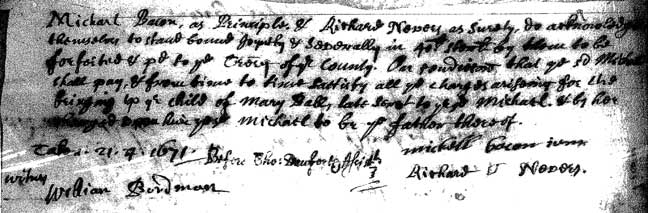 Michael Bacon, as Principle, & Richard Nevers as Surety, do acknowledge
themselves to stand bound Joyntly & Severally in by them to be
forfeited & pd to ye of ye County. On condition that ye sd Michael
shall pay, & from time to time satisfy all ye charges ariseing for the
bringing up ye child of Mary Bell, late to ye sd Michael. & by her
charged upon him ye sd Michael to be ye father thereof.
Taken. 21. 4. 1671. Before Tho: Danforth, Assist.
michell bacon iunr
Richard Nevers.
witnes
William Bordman